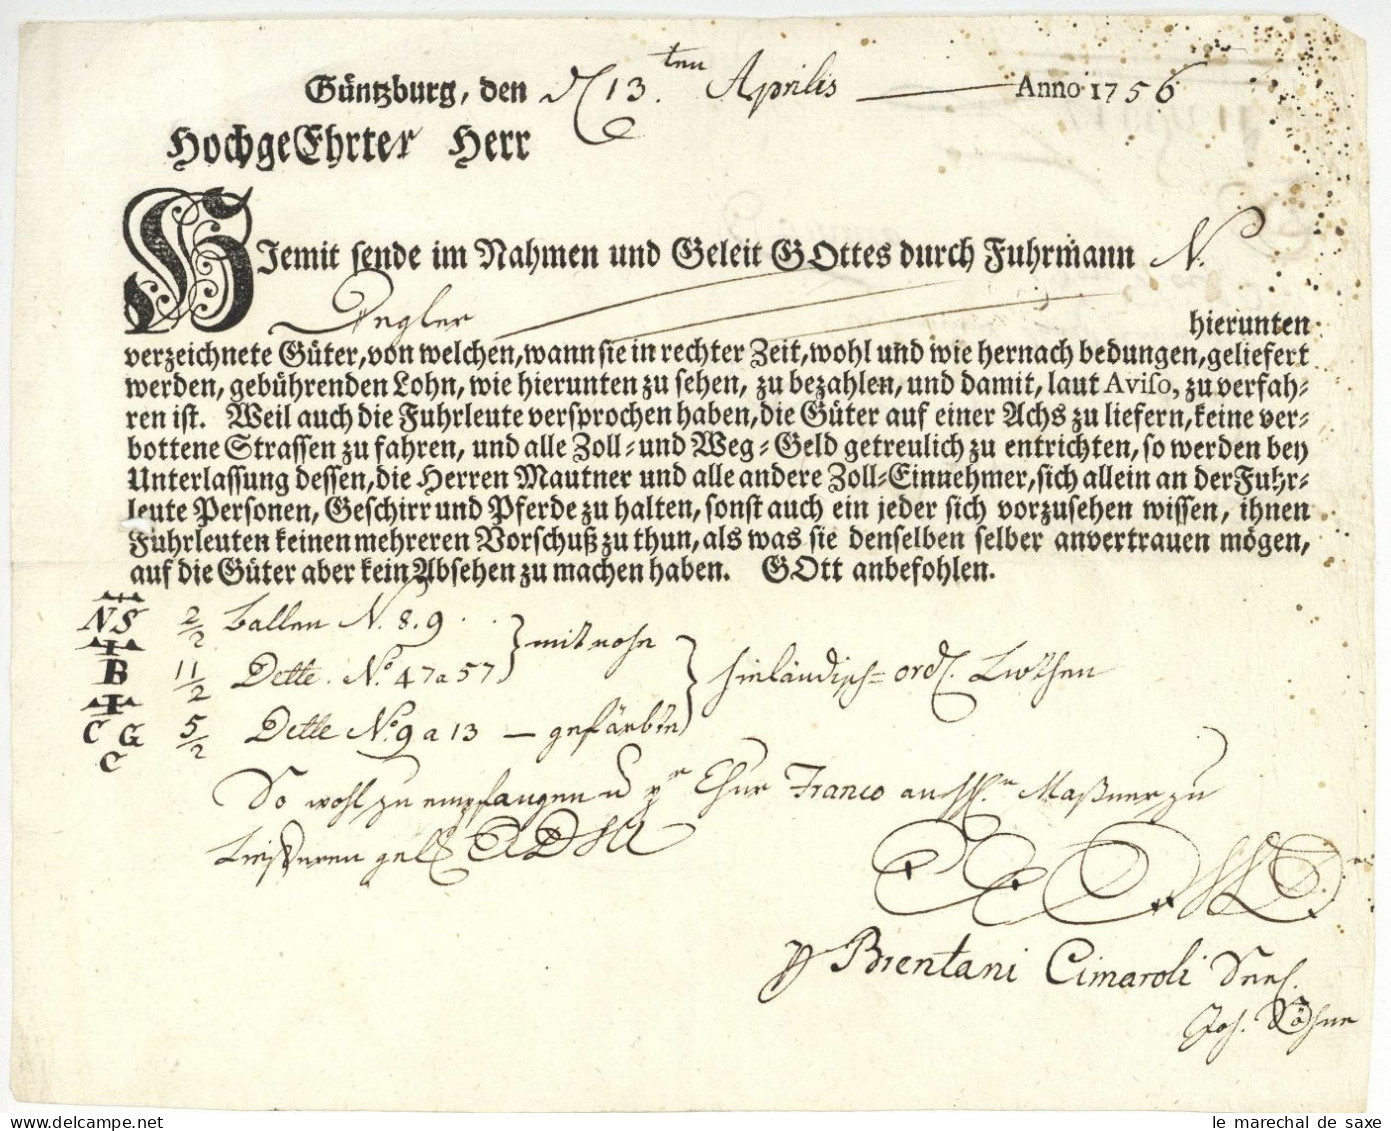 Güntzburg, den 13.ten Aprilis Anno 1756
HochgeEhrter Herr
HJemit sende im Nahmen und Geleit GOttes durch Fuhrmann N.
hierunten
verzeichnete Güter, von welchen, wann sie in rechter Zeit, wohl und wie hernach bedungen, geliefert
werden, gebührenden Lohn, wie hierunten zu sehen, zu bezahlen, und damit, laut Aviso, zu verfah-
ren ist. Weil auch die Fuhrleute versprochen haben, die Güter auf einer Achs zu liefern, keine ver-
bottene Strassen zu fahren, und alle Zoll- und Weg-Geld getreulich zu entrichten, so werden bey
Unterlassung dessen, die Herren Mautner und alle andere Zoll-Einnehmer, sich allein an der Fuhr-
leute Personen, Geschirr und Pferde zu halten, sonst auch ein jeder sich vorzusehen wissen, ihnen
Fuhrleuten keinen mehreren Vorschuß zu thun, als was sie denselben selber anvertrauen mögen,
auf die Güter aber kein Absehen zu machen haben. GOtt anbefohlen.
NS 2/2 Ballen N. 8. 9
B 11/2 Dette. No. 47 a 57 mit rohe
CGC 5/2 Dette No. 9 a 13 — gefärbte
So wohl zu empfangen u pr Chur Franco an Maßner zu
Brentani Cimaroli Seel.
Jos. Söhne
le marechal de saxe